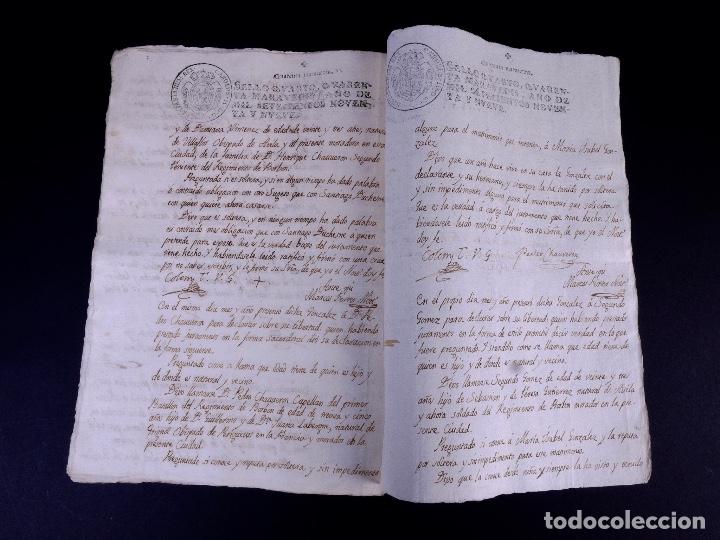 SELLO QVARTO, QVAREN-
TA MARAVEDIS, AÑO DE
MIL SETECIENTOS NOVEN-
TA Y NVEVE.
y de Ximenez de edad de veinte y tres años, natural
de Obispado de Avila y al presente morador en esta
Ciudad, de la familia de Dn Henrique Chauveron Segundo
Teniente del Regimiento de Borbon.
Preguntada si es soltera, y si en algun tiempo ha dado palabra
o contraido obligacion con otro Sugeto que con Santiago Duchesne
con quien quiere ahora casarse.
Dijo que es soltera, y en ningun tiempo ha dado palabra
ni contraido mas obligacion que con Santiago Duchesne a quien
pretende para esposo. Que es la verdad bajo del juramento que
tiene hecho. I habiendosele leido ratifico y firmo con una cruz,
por no saber escribir, y lo firmo su Sria, de que yo el Notº doy fe
Colom T. V. G. +
Ante mi
Marcos Notº
En el mismo dia mes y año presento dicha Gonzalez a Dn Pe-
dro Chauveron para declarar sobre su libertad, quien habiendo
prestado juramento en la forma Sacerdotal dio su declaracion en
la forma siguiente.
Preguntado como se llama que edad tiene de quien es hijo y
de donde es natural y vecino.
Dijo llamarse Dn Pedro Chauveron Capellan del primer
Batallon del Regimiento de Borbon de edad de treinta y cinco
años hijo de Dn Guillermo y de Da Juana natural de
Obispado de Perigueux en la Francia y morador de la
presente Ciudad.
Preguntado si conoce y reputa por soltera, y sin impedimento
SELLO QVARTO, QVAREN-
TA MARAVEDIS, AÑO DE
MIL SETECIENTOS NOVEN-
TA Y NVEVE.
alguno para el matrimonio que intenta, á Maria Isabel Gon-
zalez.
Dijo que un año hace vive en su casa la Gonzalez con el
declarante, y su hermano, y siempre la ha tenido por soltera
y sin impedimento alguno para el matrimonio que solicita.
Que es la verdad á cargo del juramento que tiene hecho. I ha-
biendosele leido ratifico y firmo con su Sria, de que yo el Notº
doy fe.
Colom T. V. G.
Ante mi
Marcos Notº
En el propio dia, mes y año presento dicha Gonzalez, a Segundo
Gomez para declarar sobre su libertad quien habiendo prestado
juramento en la forma de estilo prometio decir verdad en lo que
fuere preguntado. I siendolo como se llama que edad tiene de
quien es hijo y de donde es natural y vecino.
Dijo llamarse Segundo Gomez de edad de veinte y tres
años hijo de Sebastian y de Teresa Gutierrez natural de Avila
y ahora soldado del Regimiento de Borbon morador en la pre-
sente Ciudad.
Preguntado si conoce á Maria Isabel Gonzalez, y la reputa
por soltera y sin impedimento para ese matrimonio.
Dijo que la conoce desde niña y siempre la ha visto y tenido
todocoleccion